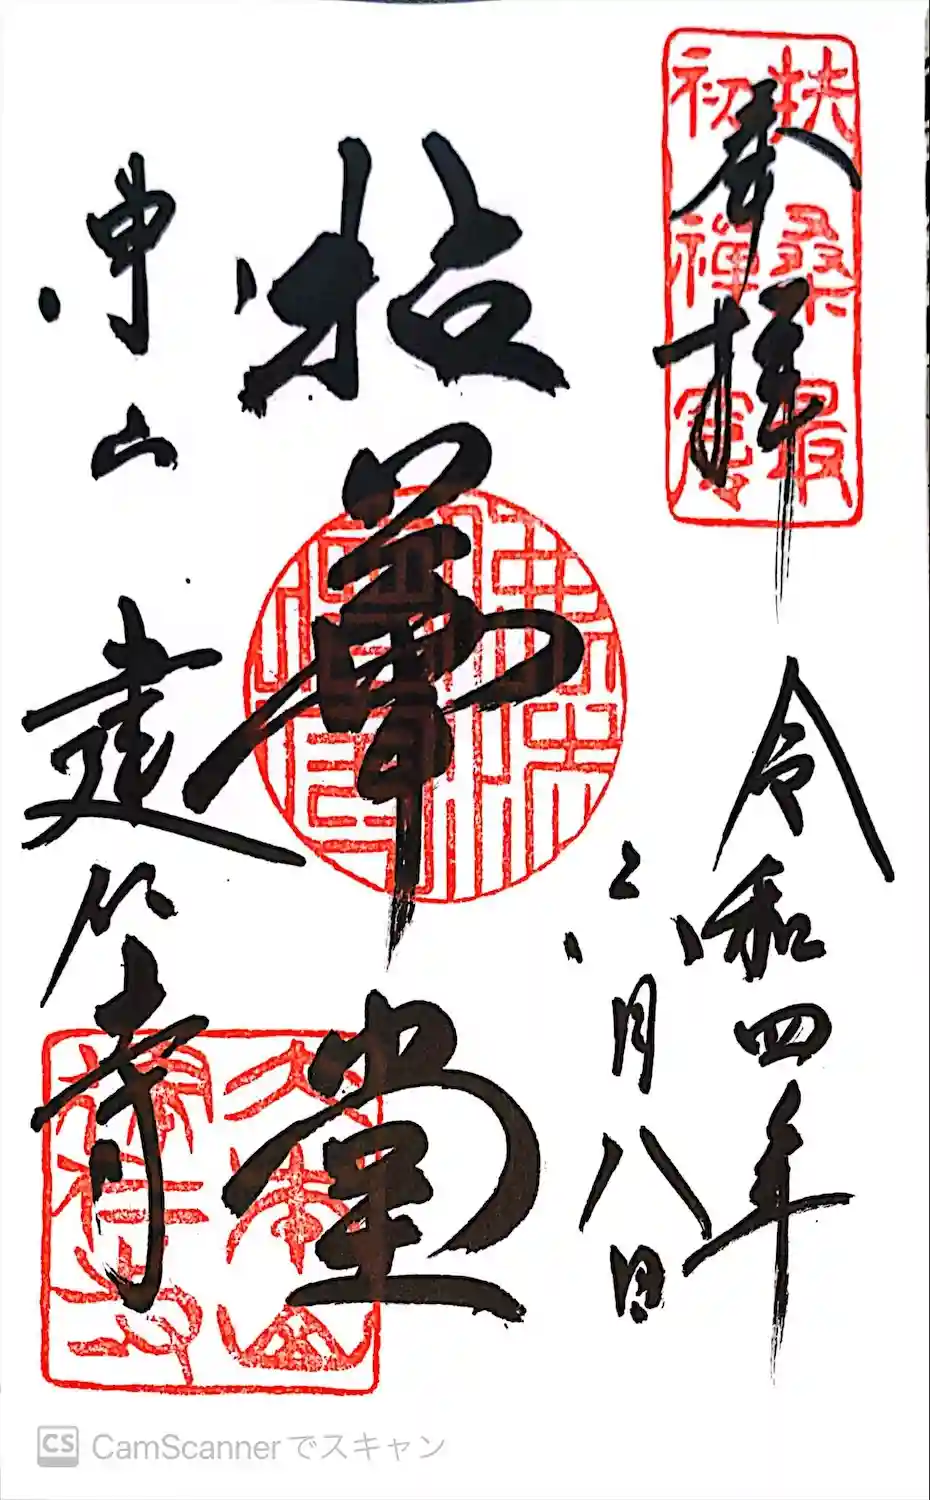 扶桑最
初禅窟
奉拝
令和四年
六月八日
拈華堂
東山 建仁寺
大本山
建仁寺
CS CamScannerでスキャン